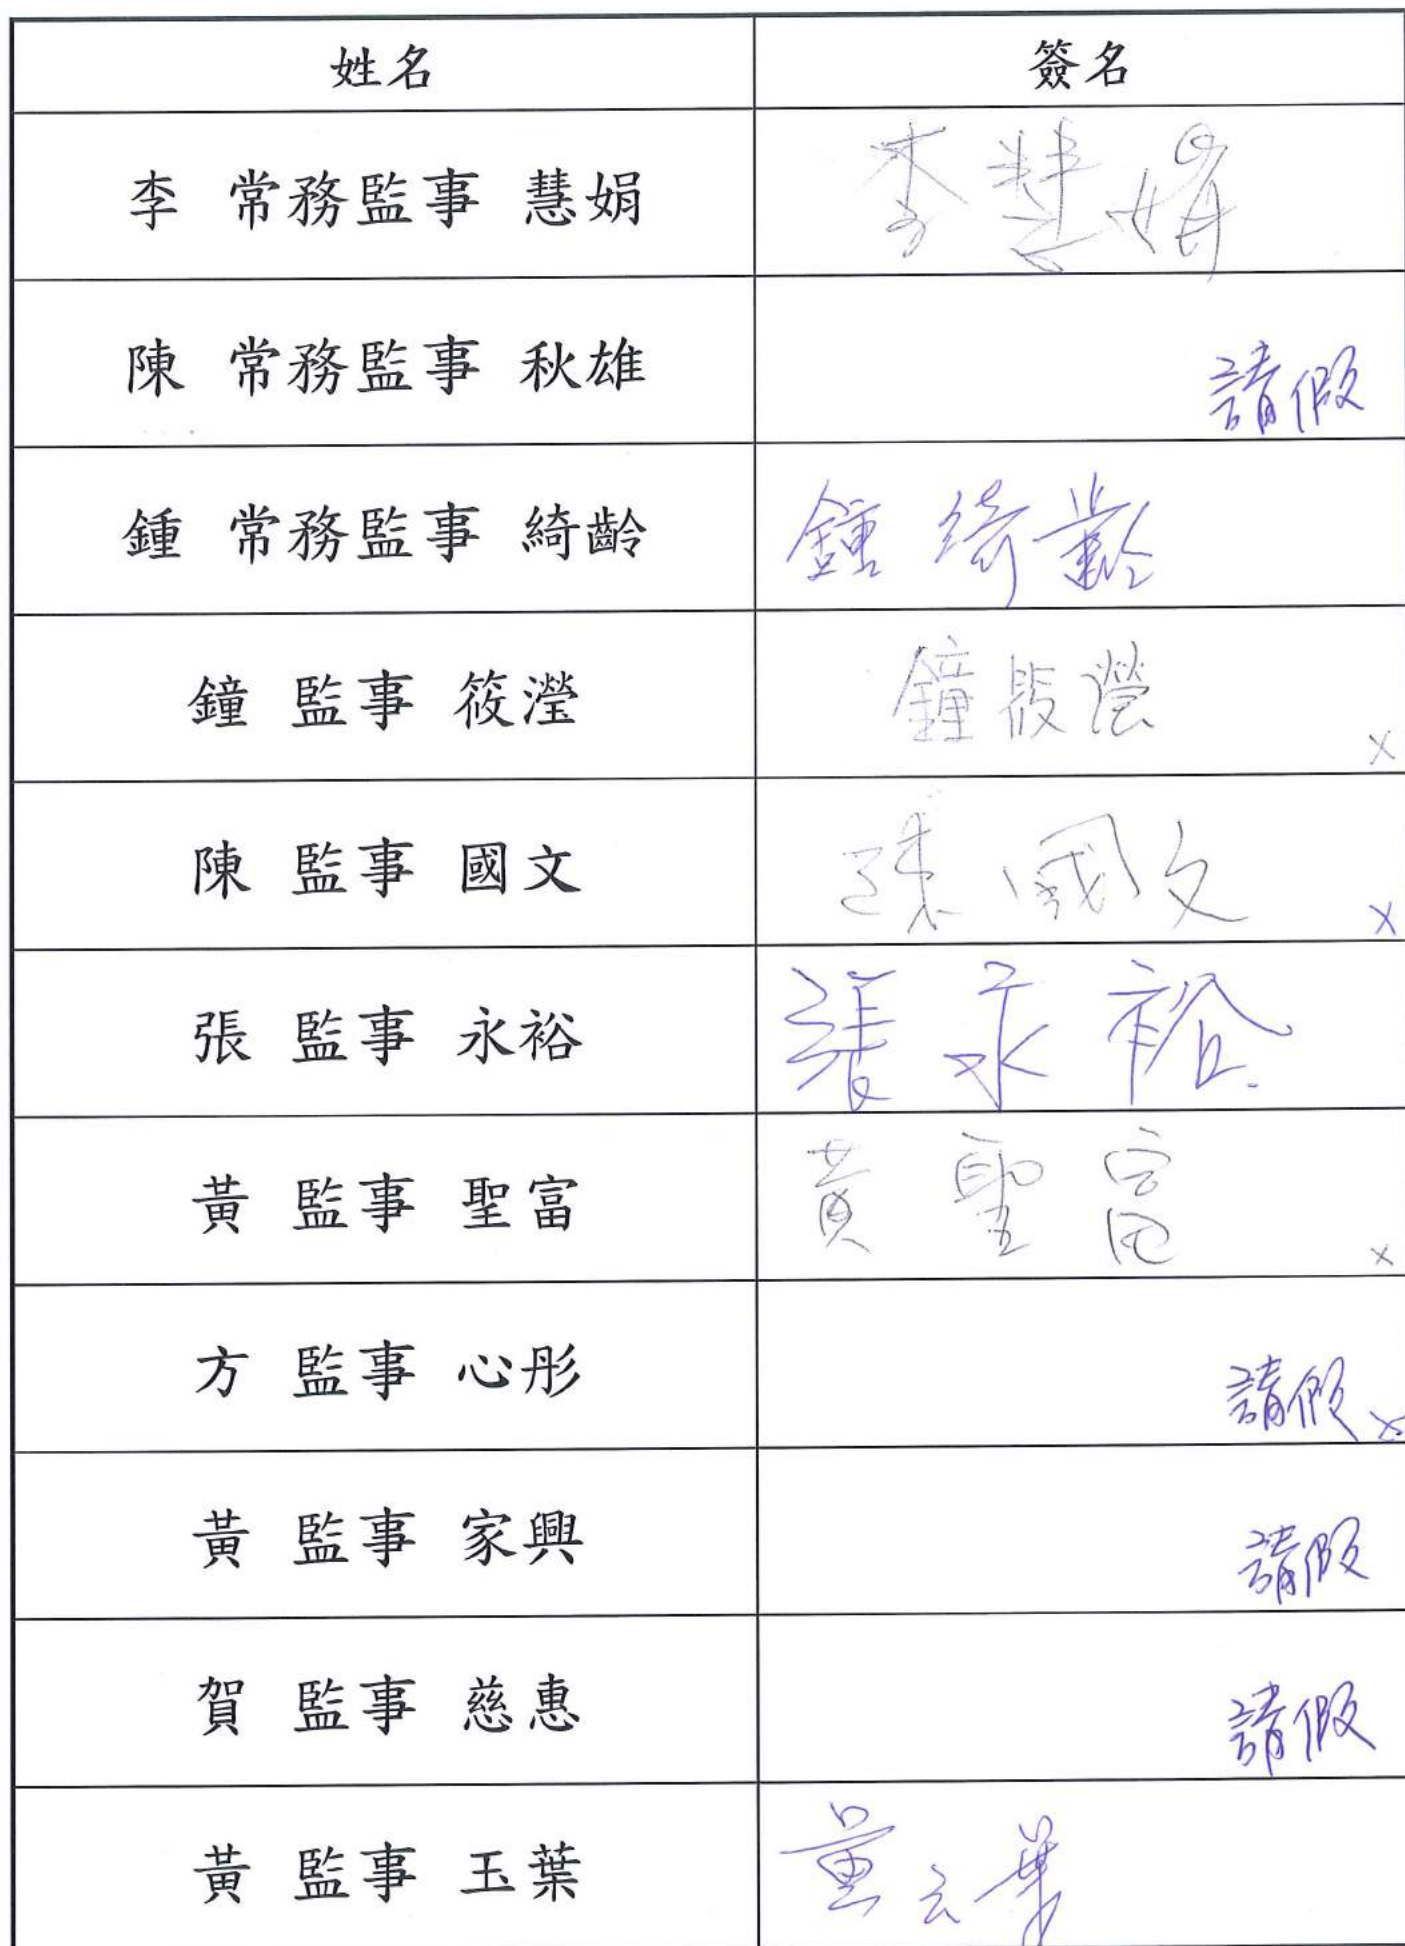 姓名 簽名
李 常務監事 慧娟 李慧娟
陳 常務監事 秋雄 請假
鍾 常務監事 綺齡 鍾綺齡
鐘 監事 筱瀅 鐘筱瀅 x
陳 監事 國文 陳國文 x
張 監事 永裕 張永裕
黃 監事 聖富 黃聖富 x
方 監事 心彤 請假 x
黃 監事 家興 請假
賀 監事 慈惠 請假
黃 監事 玉葉 黃玉葉